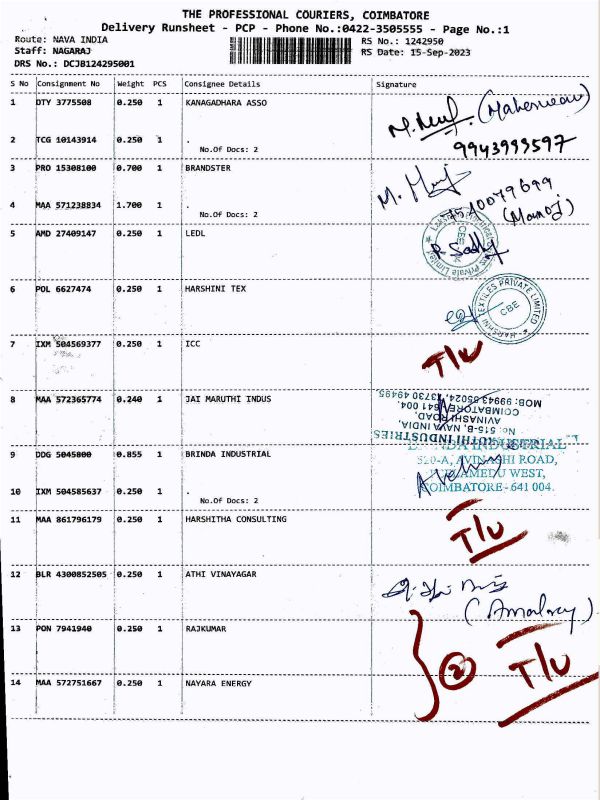 THE PROFESSIONAL COURIERS, COIMBATORE
Delivery Runsheet - PCP - Phone No.:0422-3505555 - Page No.:1
Route: NAVA INDIA RS No.: 1242950
Staff: NAGARAJ RS Date: 15-Sep-2023
DRS No.: DCJB124295001
S No Consignment No Weight PCS Consignee Details Signature
1 DTY 3775508 0.250 1 KANAGADHARA ASSO
(Maheswari)
2 TCG 10143914 0.250 1 .
No.Of Docs: 2
9943999597
3 PRO 15308100 0.700 1 BRANDSTER
4 MAA 571238834 1.700 1 .
No.Of Docs: 2
(Manoj)
5 AMD 27409147 0.250 1 LEDL
Private Limited
CBE
6 POL 6627474 0.250 1 HARSHINI TEX
HARSHNI TEXTILES PRIVATE LIMITED
CBE
7 IXM 504569377 0.250 1 ICC
T/U
8 MAA 572365774 0.240 1 JAI MARUTHI INDUS
MARUTHI INDUSTRIES
No: 515-B, NAVA INDIA,
AVINASHI ROAD,
COIMATORE-641 004.
MOB: 99943 95024, 73730 49495
9 DDG 5045800 0.855 1 BRINDA INDUSTRIAL
INDUSTRIAL
520-A, AVINASHI ROAD,
WEST,
COIMBATORE - 641 004.
10 IXM 504585637 0.250 1 .
No.Of Docs: 2
11 MAA 861796179 0.250 1 HARSHITHA CONSULTING
T/U
12 BLR 4300852505 0.250 1 ATHI VINAYAGAR
13 PON 7941940 0.250 1 RAJKUMAR
2 T/U
14 MAA 572751667 0.250 1 NAYARA ENERGY